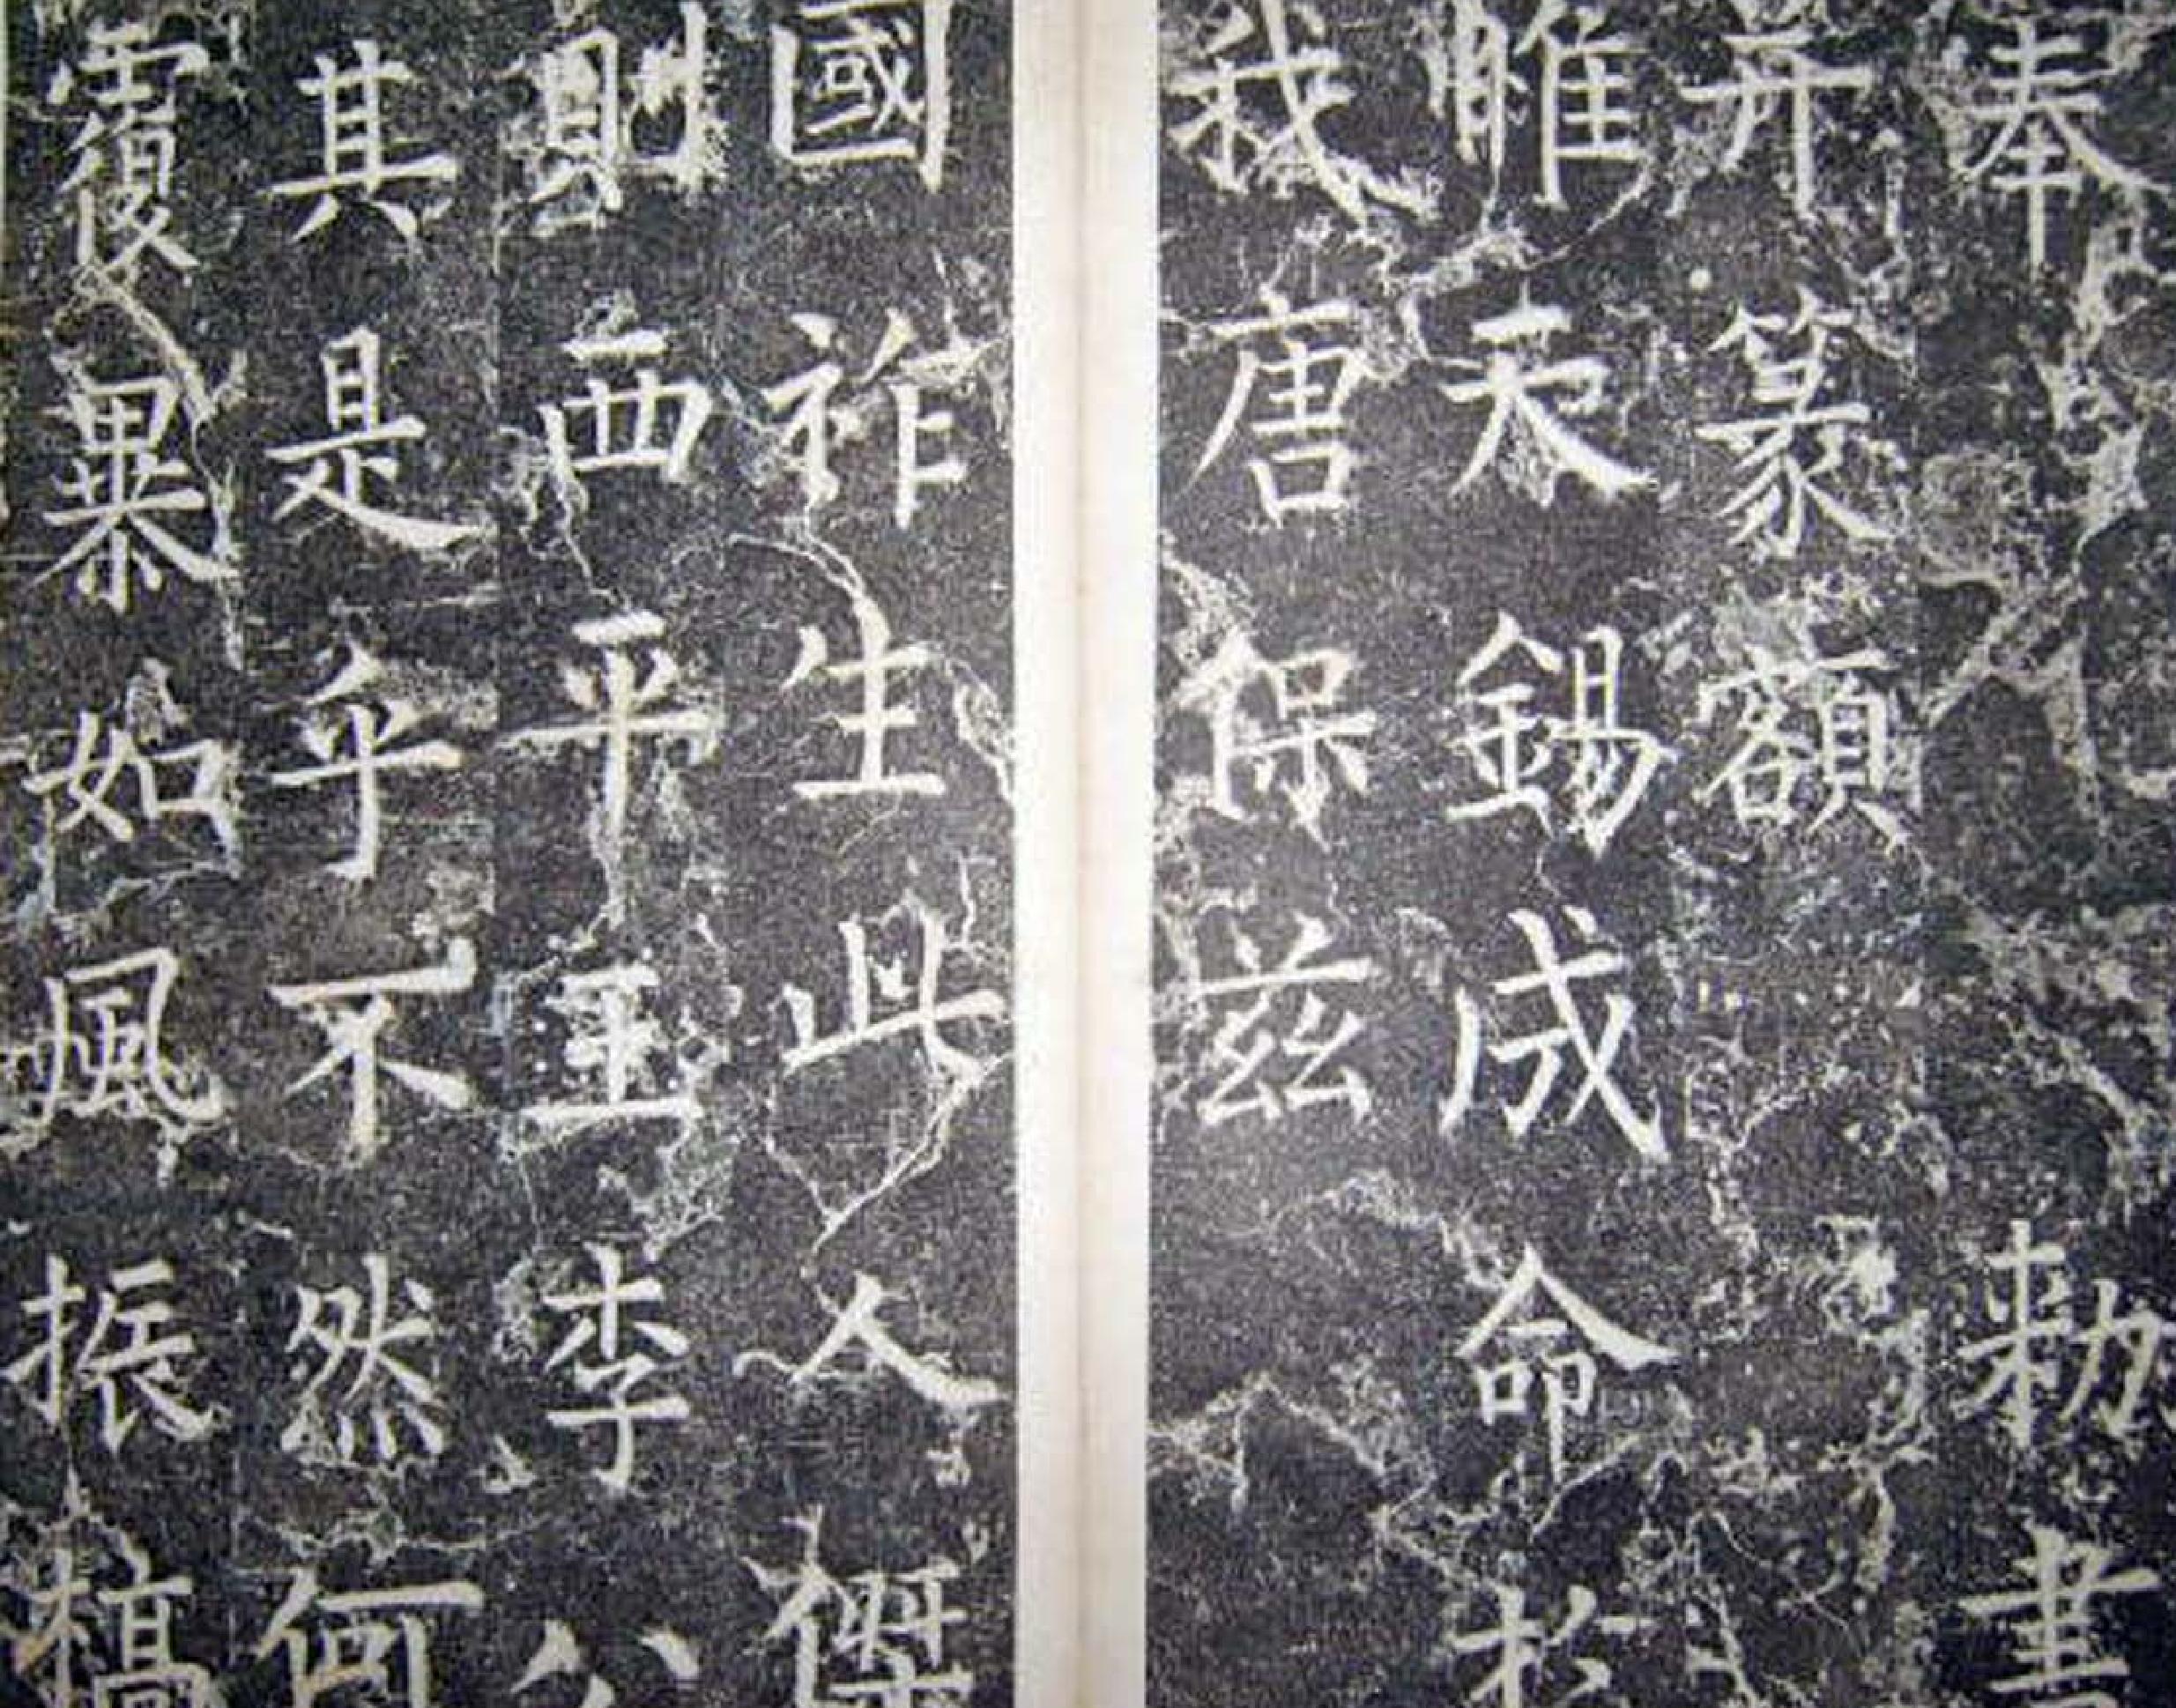 奉 勅書
并篆額
惟天錫成命於
我唐保茲
國祚生此人傑
則西平王李公
其是乎不然何
覆暴如風振槁